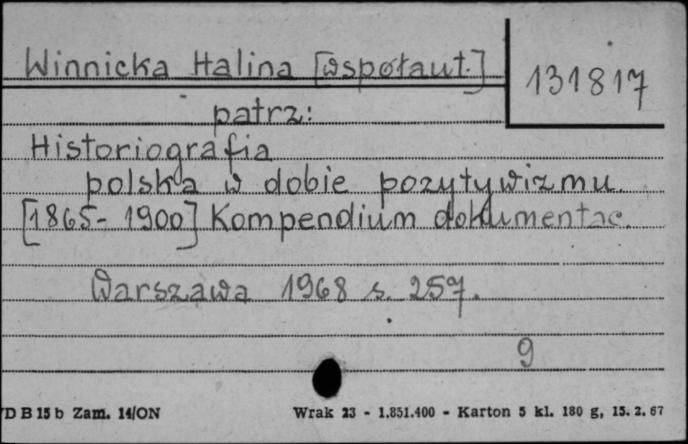 Winnicka Halina [współaut.]
131817
patrz:
Historiografia
polska w dobie pozytywizmu.
[1865-1900] Kompendium dokumentac.
Warszawa 1968 s. 257.
9
D B 15 b Zam. 14/ON
Wrak 23 - 1.851.400 - Karton 5 kl. 180 g, 15. 2. 67